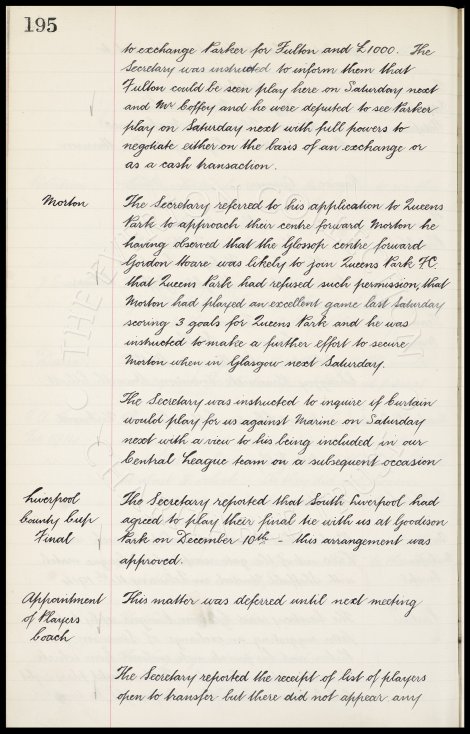 195
to exchange Parker for Fulton and £1000. The
Secretary was instructed to inform them that
Fulton could be seen play here on Saturday next
and Mr Coffey and he were deputed to see Parker
play on Saturday next with full powers to
negotiate either on the basis of an exchange or
as a cash transaction.
Morton
The Secretary referred to his application to Queens
Park to approach their centre forward Morton he
having observed that the Glossop centre forward
Gordon Hoare was likely to join Queens Park FC
that Queens Park had refused such permission, that
Morton had played an excellent game last Saturday
scoring 3 goals for Queens Park and he was
instructed to make a further effort to secure
Morton when in Glasgow next Saturday.
The Secretary was instructed to inquire if Curtain
would play for us against Marine on Saturday
next with a view to his being included in our
Central League team on a subsequent occasion
Liverpool
County Cup
Final
The Secretary reported that South Liverpool had
agreed to play their final tie with us at Goodison
Park on December 10th - this arrangement was
approved.
Appointment
of Players
Coach
This matter was deferred until next meeting
The Secretary reported the receipt of list of players
open to transfer but there did not appear any